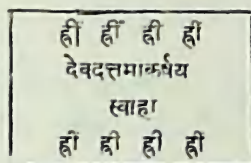 ह्रीं ह्रीं ह्रीं ह्रीं
देवदत्तमाकर्षय
स्वाहा
ह्रीं ह्रीं ह्रीं ह्रीं